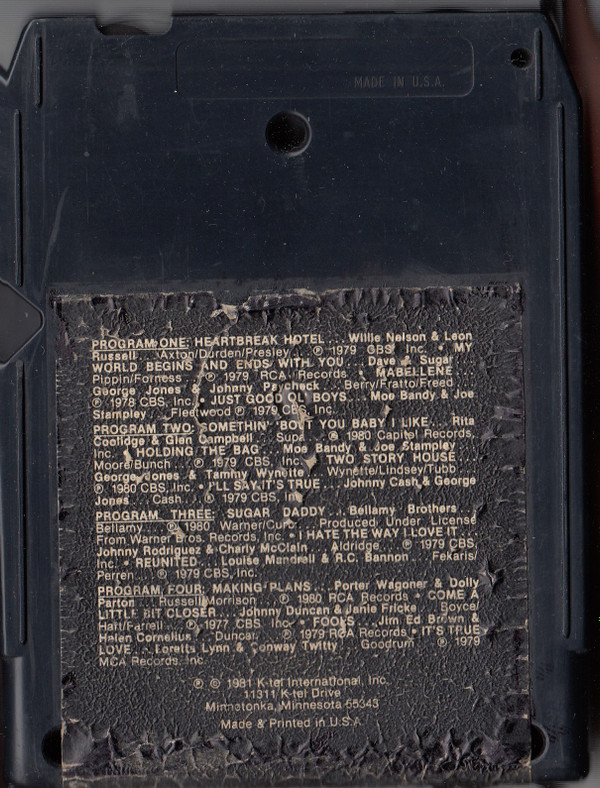 MADE IN U.S.A.
PROGRAM ONE: HEARTBREAK HOTEL ... Willie Nelson & Leon
Russell ... Axton/Durden/Presley ... ℗ 1979 CBS, Inc. • MY
WORLD BEGINS AND ENDS WITH YOU ... Dave & Sugar ...
Pippin/Forness ... ℗ 1979 RCA Records • MABELLENE ...
George Jones & Johnny Paycheck ... Berry/Fratto/Freed ...
℗ 1978 CBS, Inc. • JUST GOOD OL' BOYS ... Moe Bandy & Joe
Stampley ... Fleetwood ℗ 1979 CBS, Inc.
PROGRAM TWO: SOMETHIN' 'BOUT YOU BABY I LIKE ... Rita
Coolidge & Glen Campbell ... Supa ... ℗ 1980 Capitol Records,
Inc. • HOLDING THE BAG ... Moe Bandy & Joe Stampley ...
Moore/Bunch ... ℗ 1979 CBS, Inc. • TWO STORY HOUSE ...
George Jones & Tammy Wynette ... Wynette/Lindsey/Tubb ...
℗ 1980 CBS, Inc. • I'LL SAY IT'S TRUE ... Johnny Cash & George
Jones ... Cash ... ℗ 1979 CBS, Inc.
PROGRAM THREE: SUGAR DADDY ... Bellamy Brothers ...
Bellamy ... ℗ 1980 Warner/Curb ... Produced Under License
From Warner Bros. Records, Inc. • I HATE THE WAY I LOVE IT ...
Johnny Rodriguez & Charly McClain ... Aldridge ... ℗ 1979 CBS,
Inc. • REUNITED ... Louise Mandrell & R.C. Bannon ... Fekaris/
Perren ... ℗ 1979 CBS, Inc.
PROGRAM FOUR: MAKING PLANS ... Porter Wagoner & Dolly
Parton ... Russell/Morrison ... ℗ 1980 RCA Records • COME A
LITTLE BIT CLOSER ... Johnny Duncan & Janie Fricke ... Boyce/
Hart/Farrell ... ℗ 1977 CBS, Inc. • FOOLS ... Jim Ed Brown &
Helen Cornelius ... Duncan ... ℗ 1979 RCA Records • IT'S TRUE
LOVE ... Loretta Lynn & Conway Twitty ... Goodrum ... ℗ 1979
MCA Records, Inc.
℗ © 1981 K-tel International, Inc.
11311 K-tel Drive
Minnetonka, Minnesota 55343
Made & Printed in U.S.A.